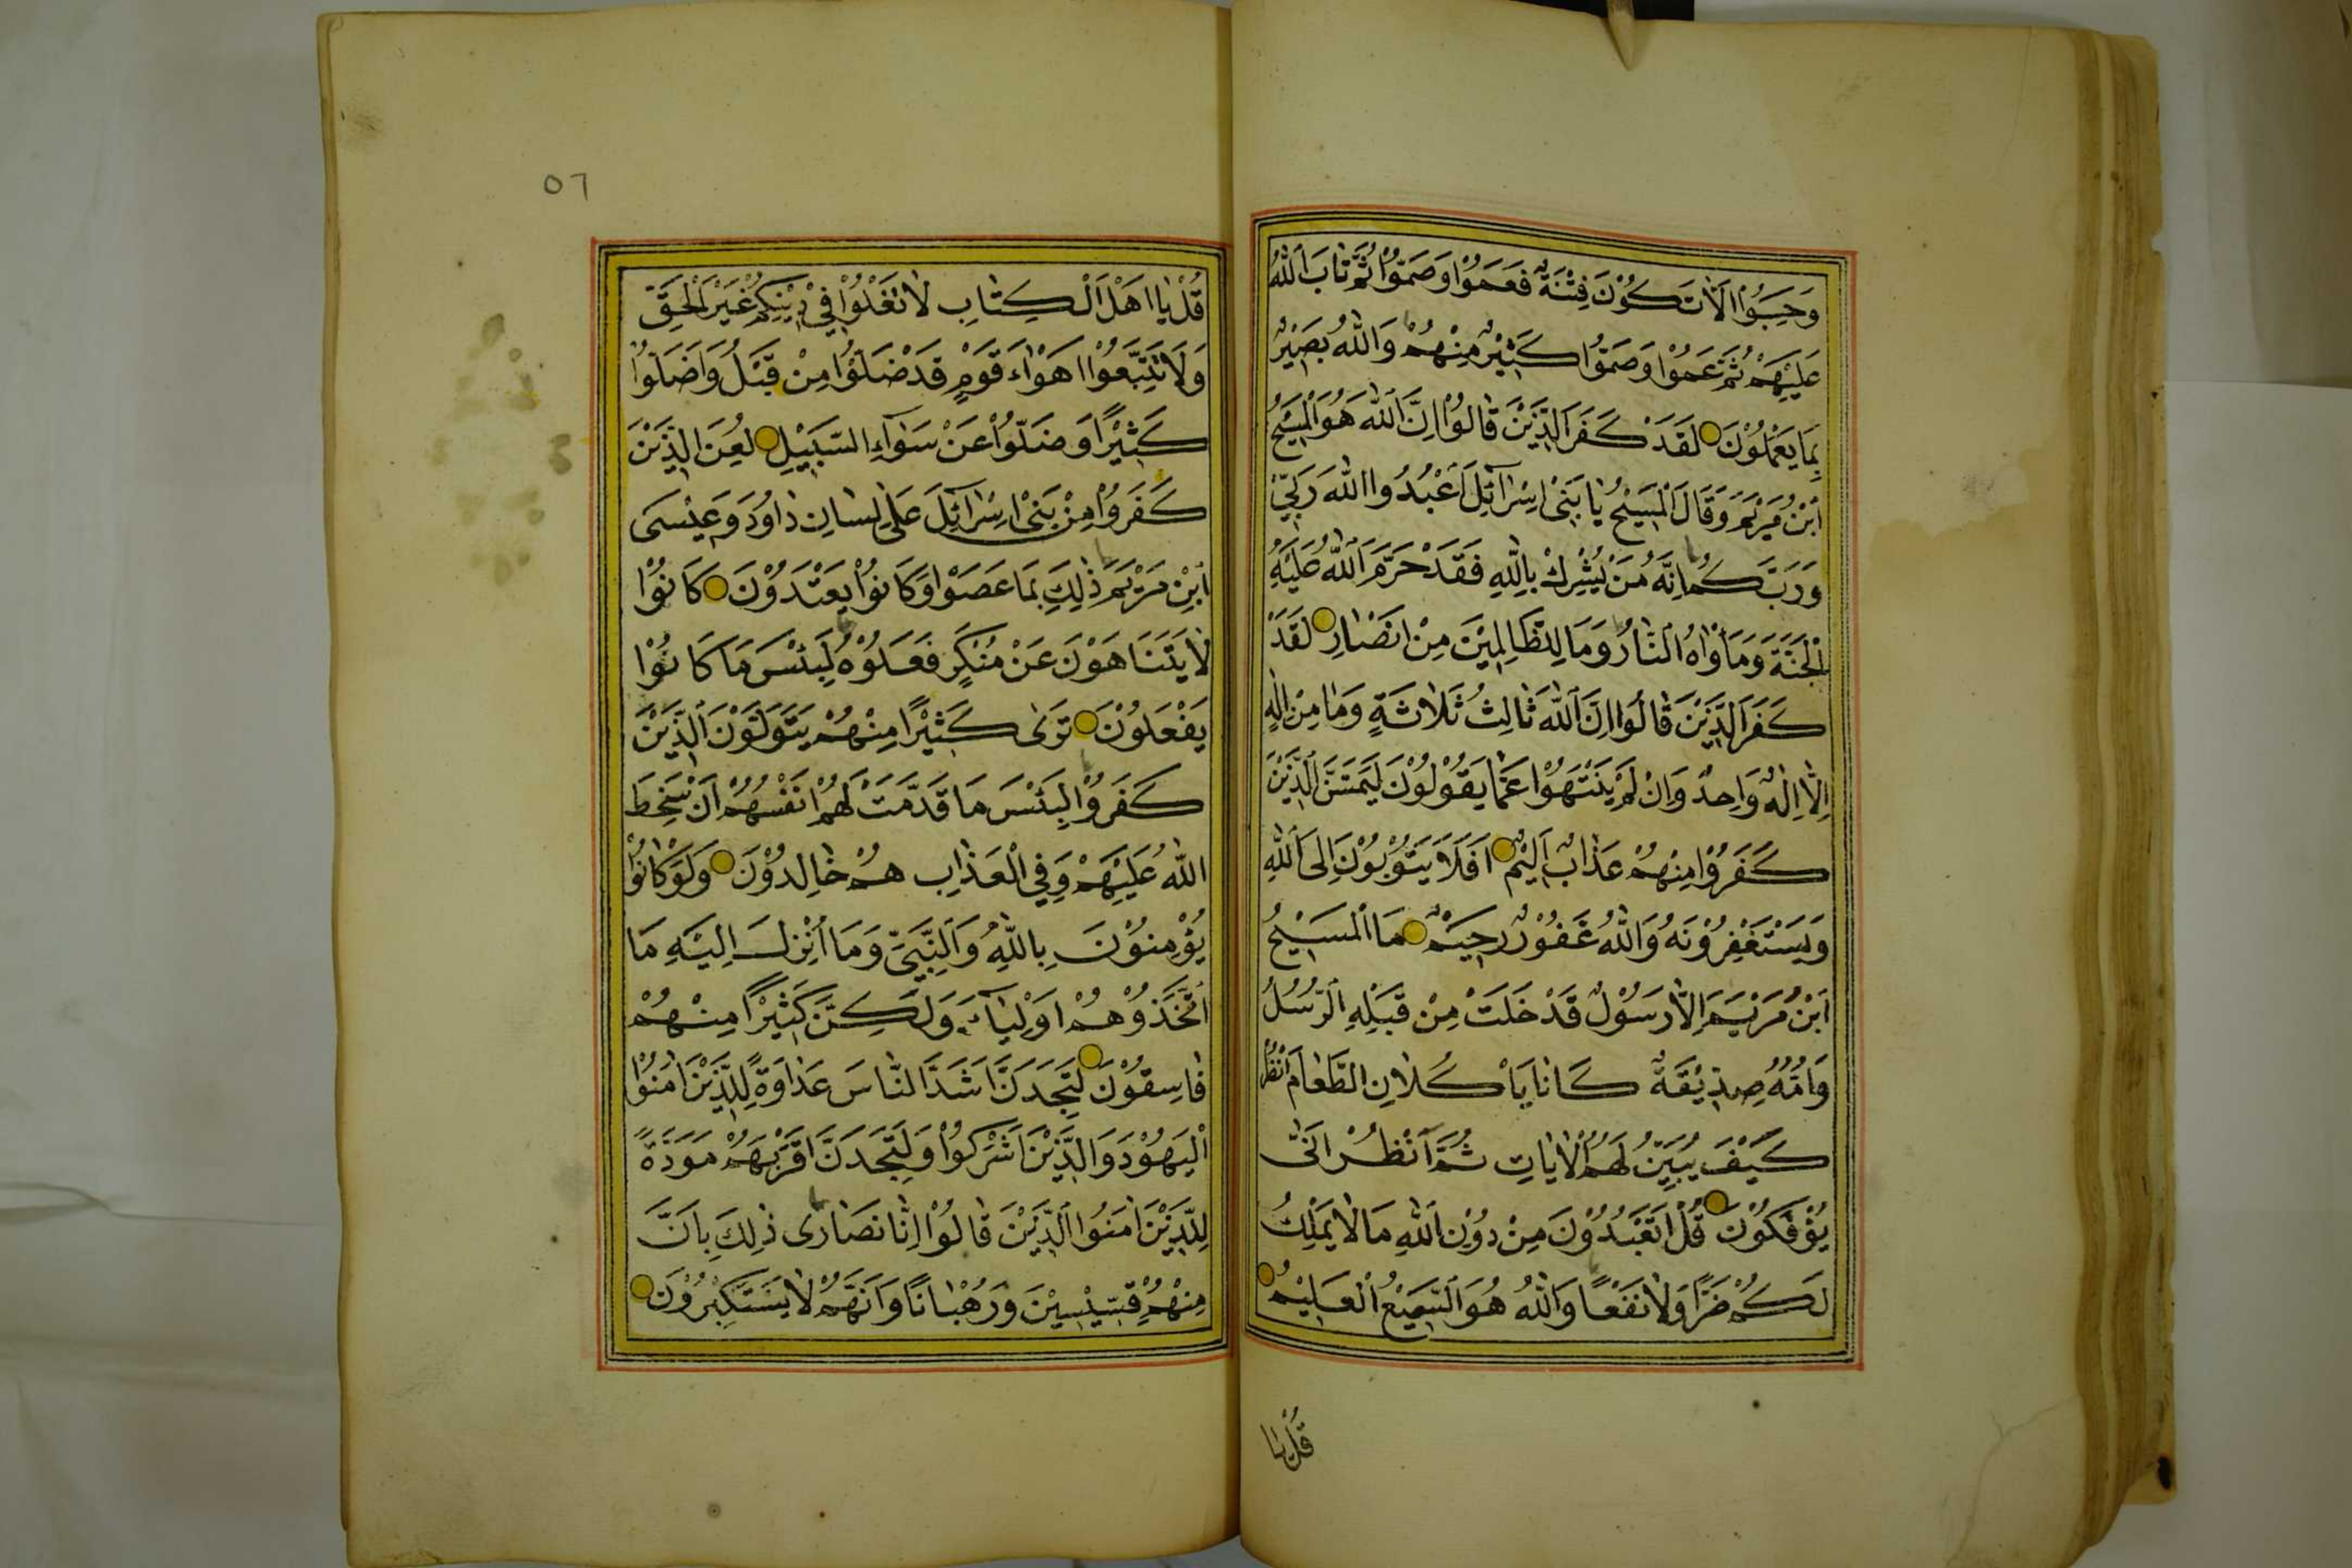 وَحَسِبُوْا اَلَّا تَكُوْنَ فِتْنَةٌ فَعَمُوْا وَصَمُّوْا ثُمَّ تَابَ اللّٰهُ
عَلَيْهِمْ ثُمَّ عَمُوْا وَصَمُّوْا كَثِيْرٌ مِنْهُمْ وَاللّٰهُ بَصِيْرٌ
بِمَا يَعْمَلُوْنَ لَقَدْ كَفَرَ الَّذِيْنَ قَالُوْا اِنَّ اللّٰهَ هُوَ الْمَسِيْحُ
ابْنُ مَرْيَمَ وَقَالَ الْمَسِيْحُ يَا بَنِىْ اِسْرَآئِلَ اعْبُدُوا اللّٰهَ رَبِّيْ
وَرَبَّكُمْ اِنَّهُ مَنْ يُشْرِكْ بِاللّٰهِ فَقَدْ حَرَّمَ اللّٰهُ عَلَيْهِ
الْجَنَّةَ وَمَأْوَاهُ النَّارُ وَمَا لِلظَّالِمِيْنَ مِنْ اَنْصَارٍ لَقَدْ
كَفَرَ الَّذِيْنَ قَالُوا اِنَّ اللّٰهَ ثَالِثُ ثَلَاثَةٍ وَمَا مِنْ اِلٰهٍ
اِلَّا اِلٰهٌ وَاحِدٌ وَاِنْ لَمْ يَنْتَهُوْا عَمَّا يَقُوْلُوْنَ لَيَمَسَّنَّ الَّذِيْنَ
كَفَرُوْا مِنْهُمْ عَذَابٌ اَلِيْمٌ اَفَلَا يَتُوْبُوْنَ اِلَى اللّٰهِ
وَيَسْتَغْفِرُوْنَهُ وَاللّٰهُ غَفُوْرٌ رَحِيْمٌ مَا الْمَسِيْحُ
ابْنُ مَرْيَمَ اِلَّا رَسُوْلٌ قَدْ خَلَتْ مِنْ قَبْلِهِ الرُّسُلُ
وَاُمُّهُ صِدِّيْقَةٌ كَانَا يَأْكُلَانِ الطَّعَامَ اُنْظُرْ
كَيْفَ نُبَيِّنُ لَهُمُ الْاٰيَاتِ ثُمَّ انْظُرْ اَنّٰى
يُؤْفَكُوْنَ قُلْ اَتَعْبُدُوْنَ مِنْ دُوْنِ اللّٰهِ مَا لَا يَمْلِكُ
لَكُمْ ضَرًّا وَلَا نَفْعًا وَاللّٰهُ هُوَ السَّمِيْعُ الْعَلِيْمُ
قُلْ يَا
٥٦
قُلْ يَا اَهْلَ الْكِتَابِ لَا تَغْلُوْا فِيْ دِيْنِكُمْ غَيْرَ الْحَقِّ
وَلَا تَتَّبِعُوْا اَهْوَاءَ قَوْمٍ قَدْ ضَلُّوْا مِنْ قَبْلُ وَاَضَلُّوْا
كَثِيْرًا وَضَلُّوْا عَنْ سَوَآءِ السَّبِيْلِ لُعِنَ الَّذِيْنَ
كَفَرُوْا مِنْ بَنِىْ اِسْرَآئِلَ عَلٰى لِسَانِ دَاوُدَ وَعِيْسَى
ابْنِ مَرْيَمَ ذٰلِكَ بِمَا عَصَوْا وَكَانُوْا يَعْتَدُوْنَ كَانُوْا
لَا يَتَنَاهَوْنَ عَنْ مُنْكَرٍ فَعَلُوْهُ لَبِئْسَ مَا كَانُوْا
يَفْعَلُوْنَ تَرٰى كَثِيْرًا مِنْهُمْ يَتَوَلَّوْنَ الَّذِيْنَ
كَفَرُوْا لَبِئْسَ مَا قَدَّمَتْ لَهُمْ اَنْفُسُهُمْ اَنْ سَخِطَ
اللّٰهُ عَلَيْهِمْ وَفِي الْعَذَابِ هُمْ خَالِدُوْنَ وَلَوْ كَانُوْا
يُؤْمِنُوْنَ بِاللّٰهِ وَالنَّبِيِّ وَمَا اُنْزِلَ اِلَيْهِ مَا
اتَّخَذُوْهُمْ اَوْلِيَآءَ وَلٰكِنَّ كَثِيْرًا مِنْهُمْ
فَاسِقُوْنَ لَتَجِدَنَّ اَشَدَّ النَّاسِ عَدَاوَةً لِلَّذِيْنَ اٰمَنُوْا
الْيَهُوْدَ وَالَّذِيْنَ اَشْرَكُوْا وَلَتَجِدَنَّ اَقْرَبَهُمْ مَوَدَّةً
لِلَّذِيْنَ اٰمَنُوا الَّذِيْنَ قَالُوْا اِنَّا نَصَارٰى ذٰلِكَ بِاَنَّ
مِنْهُمْ قِسِّيْسِيْنَ وَرُهْبَانًا وَاَنَّهُمْ لَا يَسْتَكْبِرُوْنَ